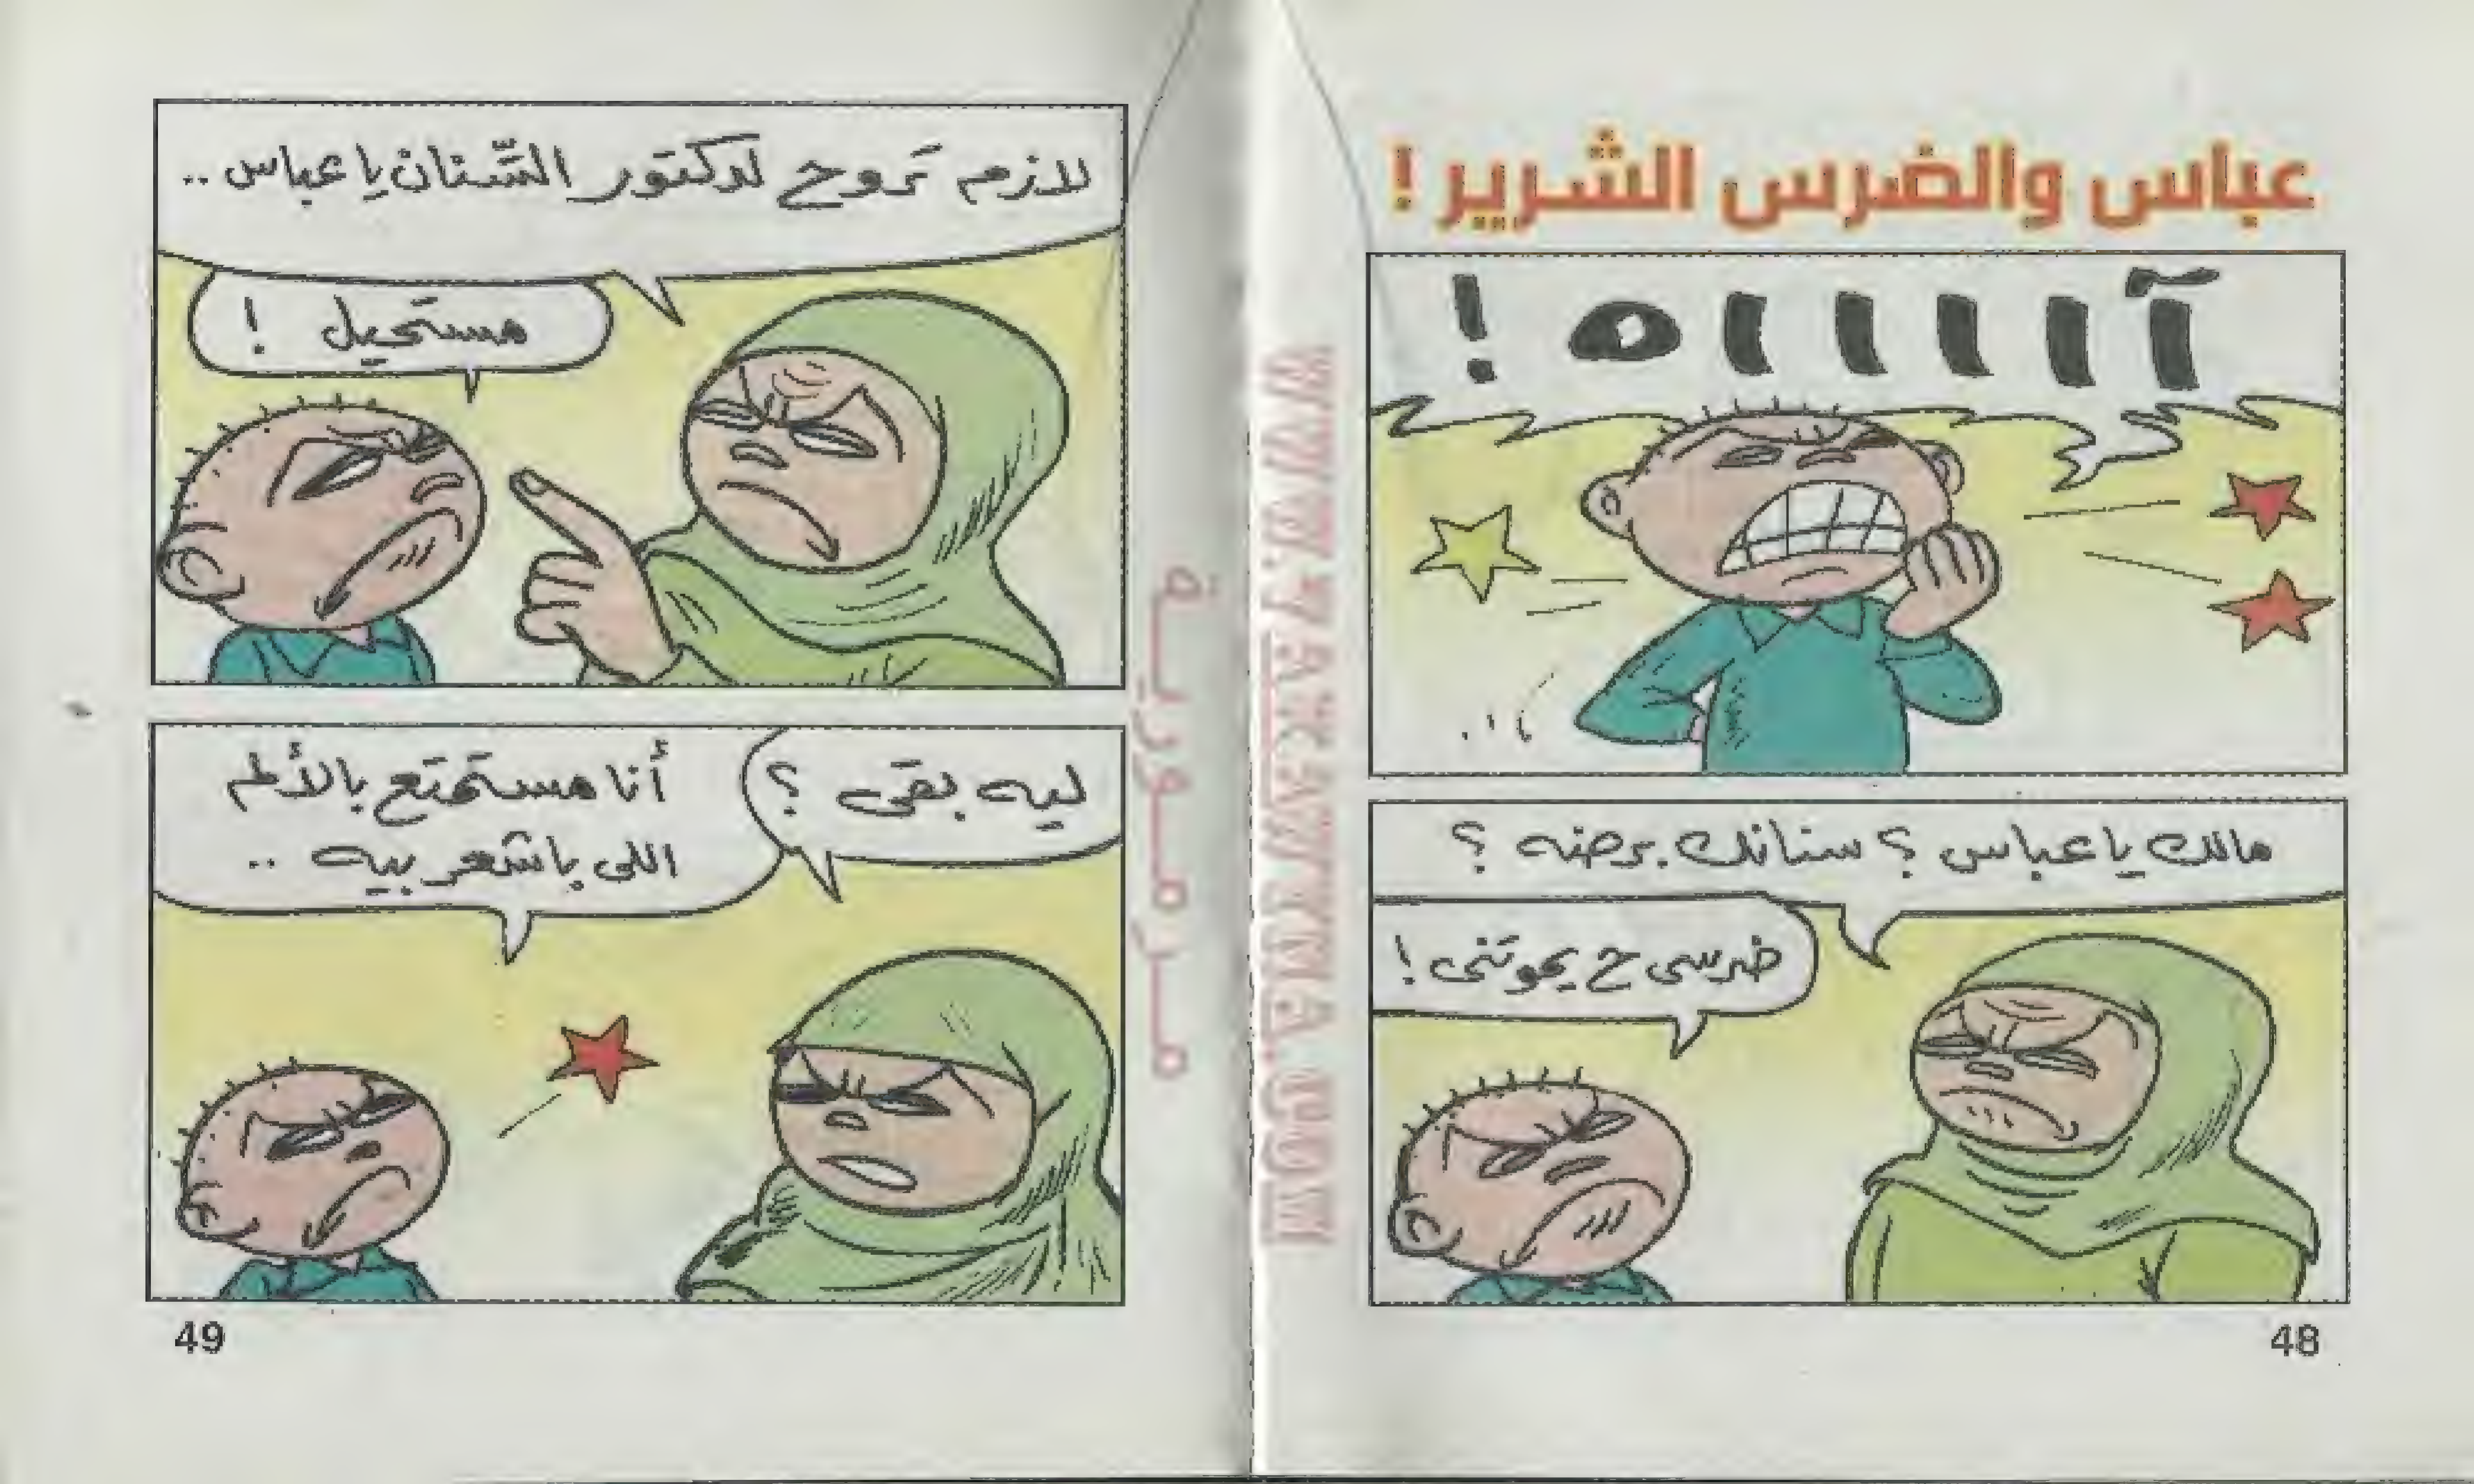 عباس والضرس الشرير !
آاااااه !
مالك يا عباس ؟ سنانك برضه ؟
ضرسى ح يموتنى !
48
لازم تروح لدكتور السّنان يا عباس ..
مستحيل !
ليه بقى ؟
أنا مستمتع بالألم
اللى باشعر بيه ..
49
مرمورية